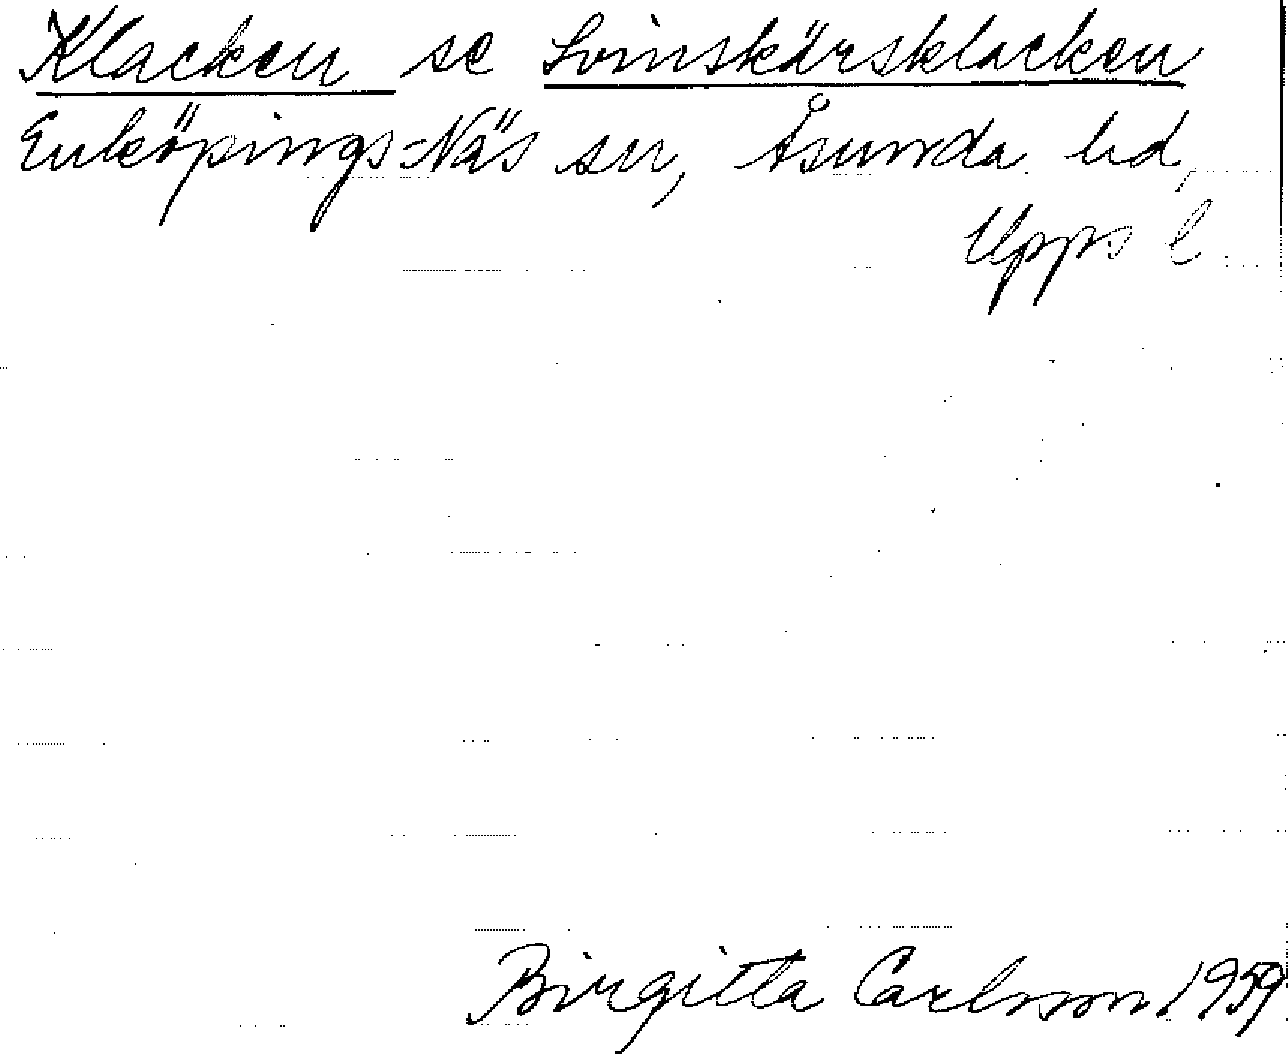 Klacken se Svinskärsklacken
Enköpings-Näs sn, Åsunda hd,
Upps l.
Birgitta Carlsson 1959